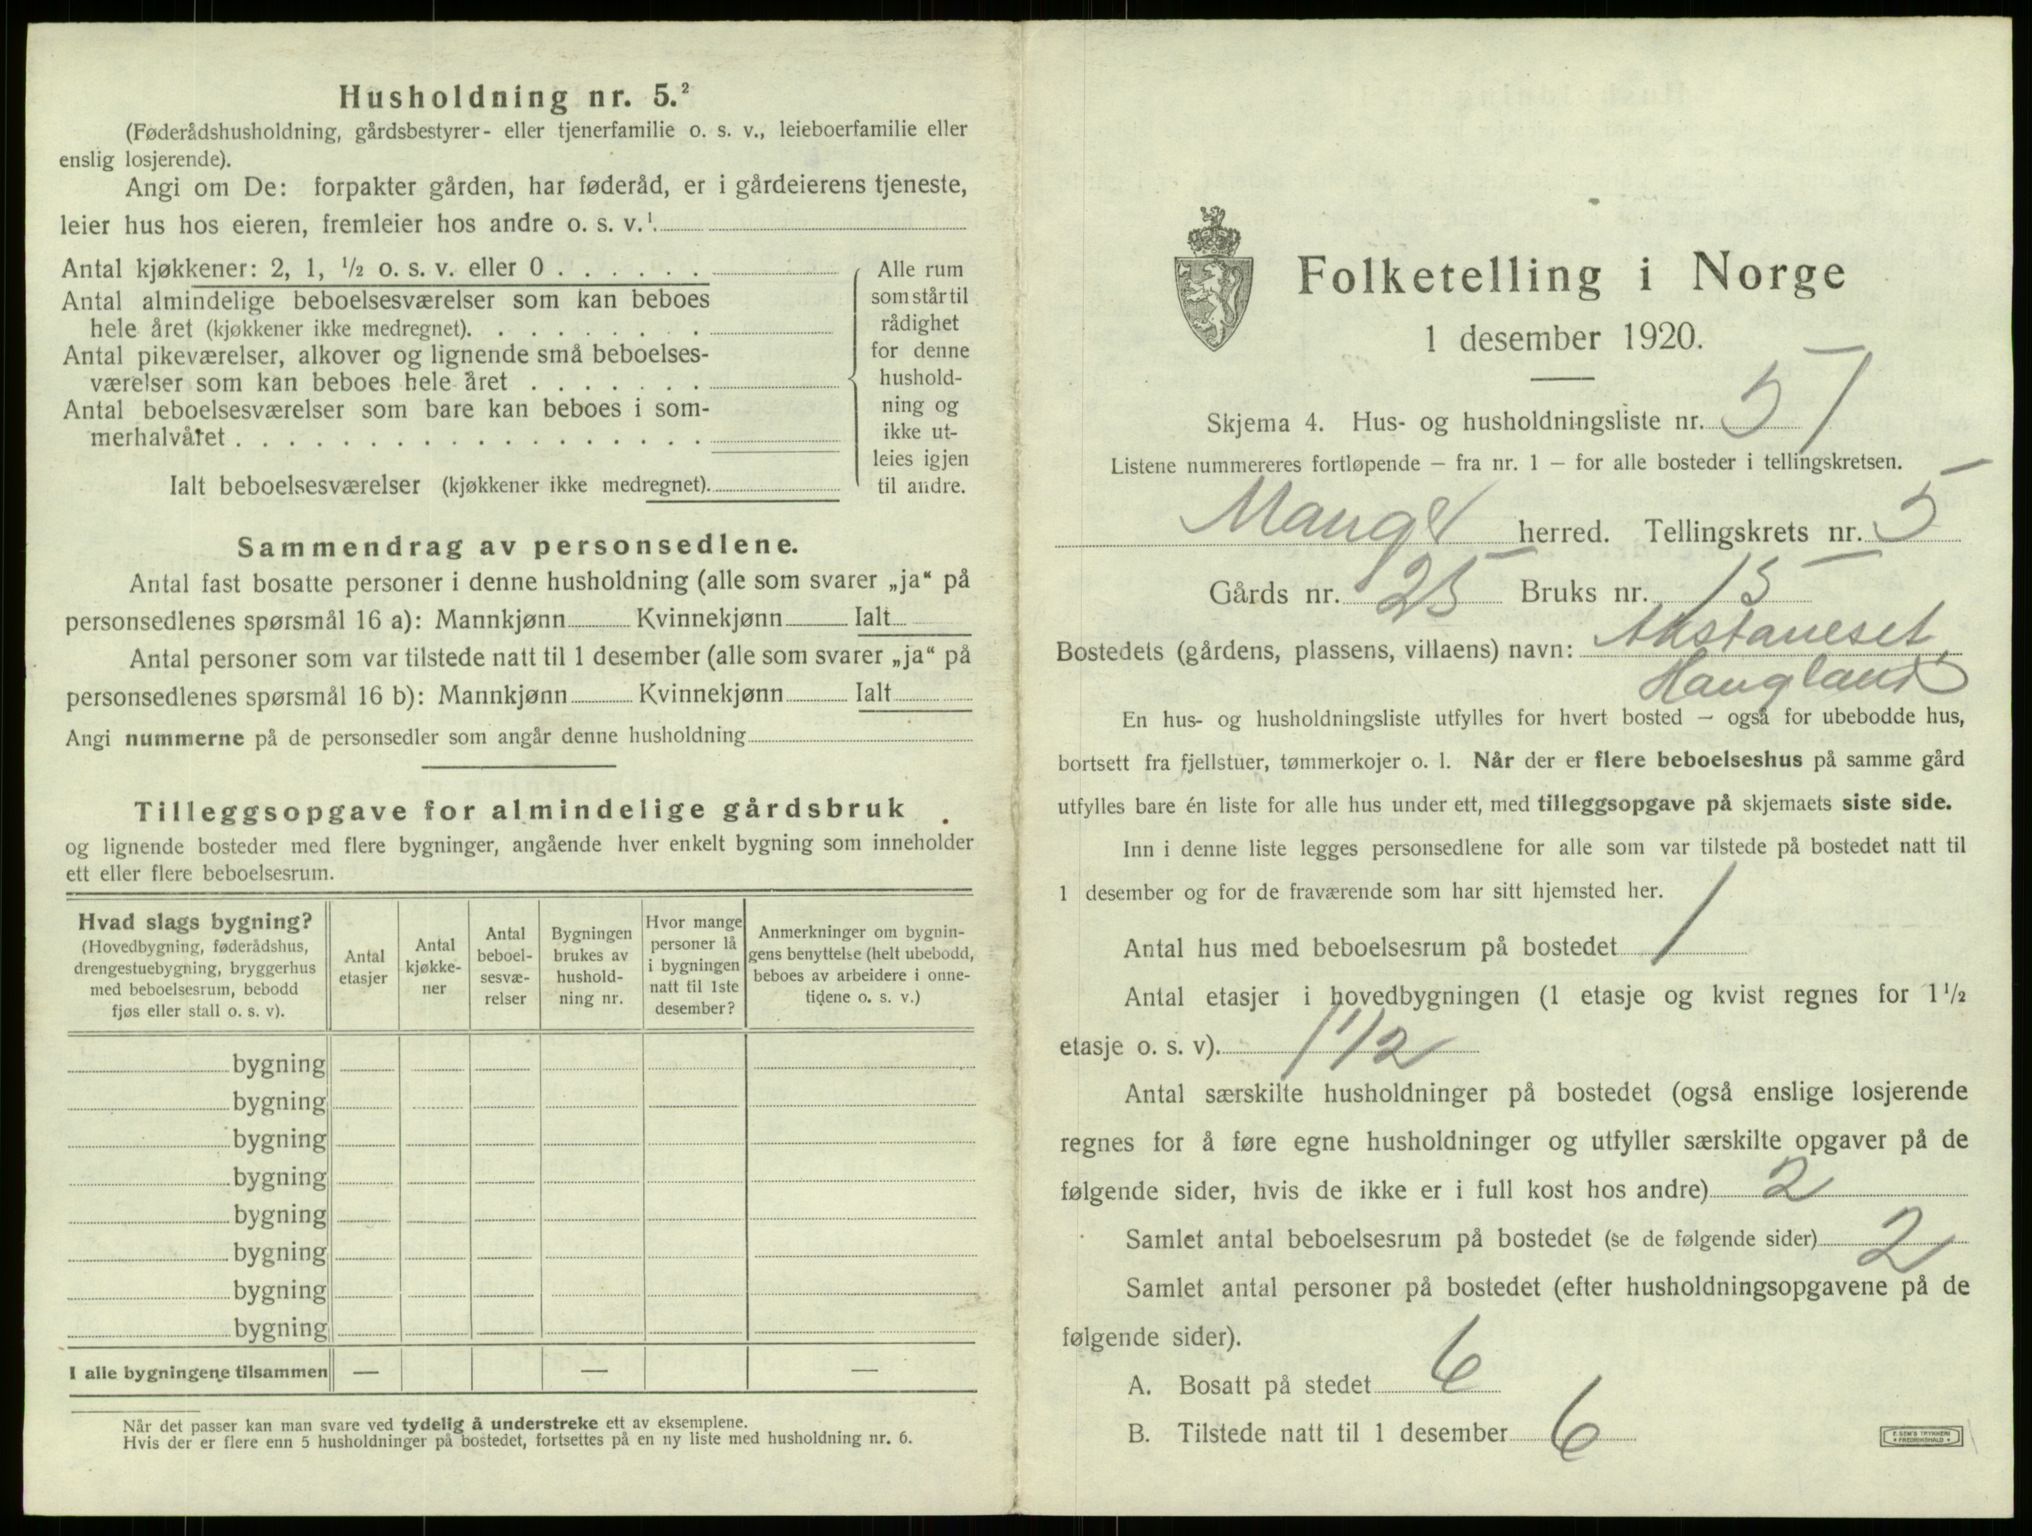 Husholdning nr. 5.²
(Føderådshusholdning, gårdsbestyrer- eller tjenerfamilie o. s. v., leieboerfamilie eller
enslig losjerende).
Angi om De: forpakter gården, har føderåd, er i gårdeierens tjeneste,
leier hus hos eieren, fremleier hos andre o. s. v.¹
Antal kjøkkener: 2, 1, ½ o. s. v. eller 0 . . . . . .
Antal almindelige beboelsesværelser som kan beboes
hele året (kjøkkener ikke medregnet). . . . . . . . .
Antal pikeværelser, alkover og lignende små beboelses-
værelser som kan beboes hele året . . . . . . .
Antal beboelsesværelser som bare kan beboes i som-
merhalvåret . . . . . . . . . . . . . . . . . .
Ialt beboelsesværelser (kjøkkener ikke medregnet).
Alle rum
som står til
rådighet
for denne
hushold-
ning og
ikke ut-
leies igjen
til andre.
Sammendrag av personsedlene.
Antal fast bosatte personer i denne husholdning (alle som svarer „ja“ på
personsedlenes spørsmål 16 a): Mannkjønn Kvinnekjønn Ialt
Antal personer som var tilstede natt til 1 desember (alle som svarer „ja“ på
personsedlenes spørsmål 16 b): Mannkjønn Kvinnekjønn Ialt
Angi nummerne på de personsedler som angår denne husholdning
Tilleggsopgave for almindelige gårdsbruk
og lignende bosteder med flere bygninger, angående hver enkelt bygning som inneholder
ett eller flere beboelsesrum.
Hvad slags bygning?
(Hovedbygning, føderådshus,
drengestuebygning, bryggerhus
med beboelsesrum, bebodd
fjøs eller stall o. s. v).
Antal
etasjer
Antal
kjøkke-
ner
Antal
beboel-
sesvæ-
relser
Bygningen
brukes av
hushold-
ning nr.
Hvor mange
personer lå
i bygningen
natt til 1ste
desember?
Anmerkninger om bygnin-
gens benyttelse (helt ubebodd,
beboes av arbeidere i onne-
tidene o. s. v.)
bygning
bygning
bygning
bygning
bygning
bygning
bygning
bygning
I alle bygningene tilsammen — — —
Når det passer kan man svare ved tydelig å understreke ett av eksemplene.
Hvis der er flere enn 5 husholdninger på bostedet, fortsettes på en ny liste med husholdning nr. 6.
Folketelling i Norge
1 desember 1920.
Skjema 4. Hus- og husholdningsliste nr. 57
Listene nummereres fortløpende – fra nr. 1 – for alle bosteder i tellingskretsen.
Manger herred. Tellingskrets nr. 5
Gårds nr. 25 Bruks nr. 15
Bostedets (gårdens, plassens, villaens) navn:
Haugland
En hus- og husholdningsliste utfylles for hvert bosted – også for ubebodde hus,
bortsett fra fjellstuer, tømmerkojer o. l. Når der er flere beboelseshus på samme gård
utfylles bare én liste for alle hus under ett, med tilleggsopgave på skjemaets siste side.
Inn i denne liste legges personsedlene for alle som var tilstede på bostedet natt til
1 desember og for de fraværende som har sitt hjemsted her.
Antal hus med beboelsesrum på bostedet 1
Antal etasjer i hovedbygningen (1 etasje og kvist regnes for 1½
etasje o. s. v). 1 1/2
Antal særskilte husholdninger på bostedet (også enslige losjerende
regnes for å føre egne husholdninger og utfyller særskilte opgaver på de
følgende sider, hvis de ikke er i full kost hos andre) 2
Samlet antal beboelsesrum på bostedet (se de følgende sider) 2
Samlet antal personer på bostedet (efter husholdningsopgavene på de
følgende sider).
A. Bosatt på stedet 6
B. Tilstede natt til 1 desember 6
E. SEM'S TRYKKERI
• FREDRIKSHALD •